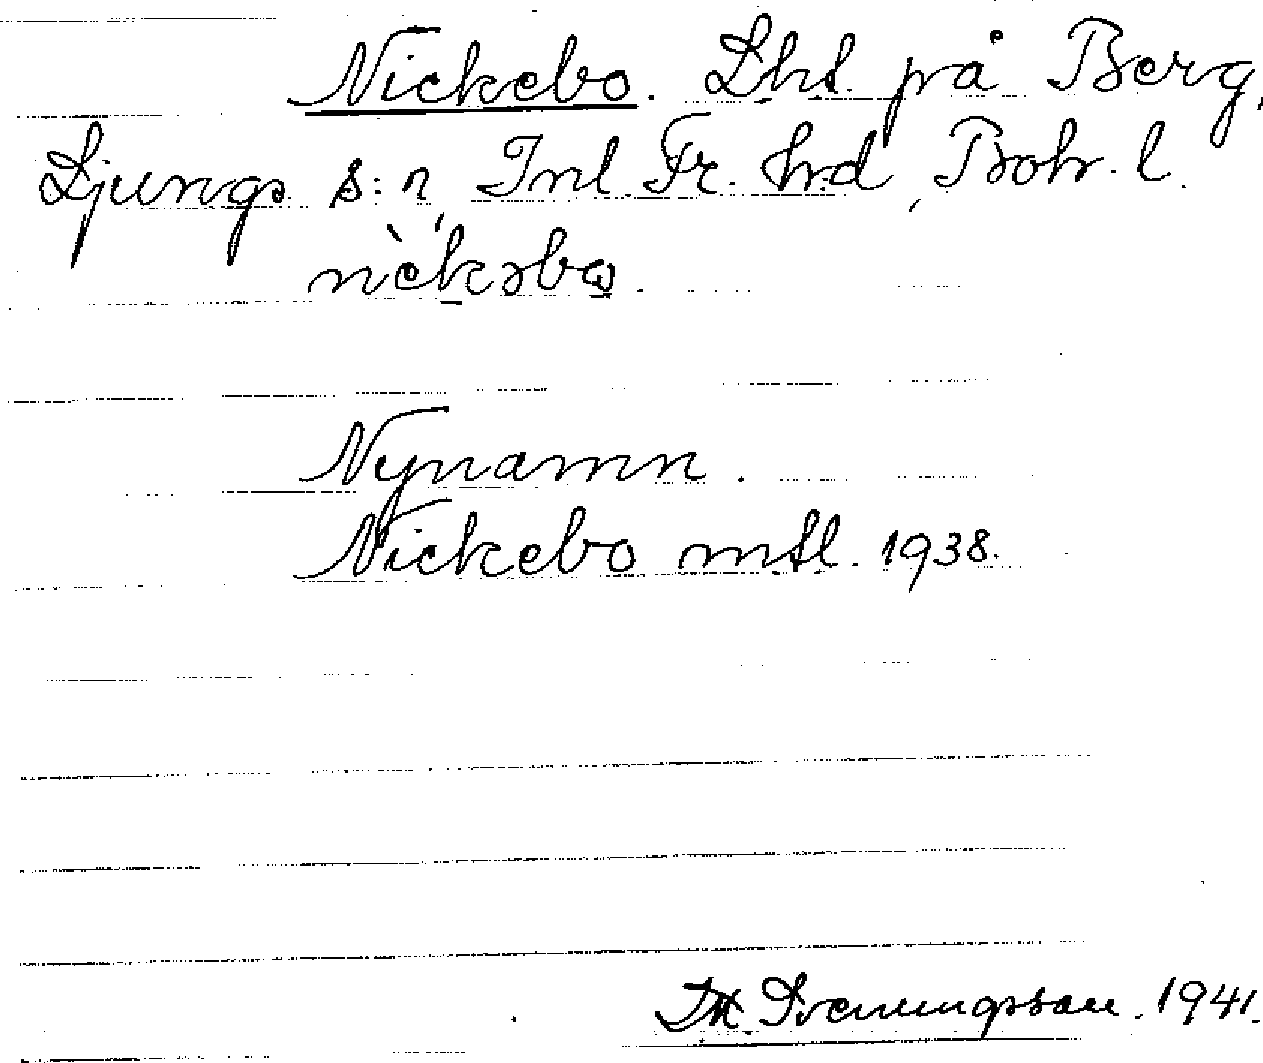 Nickebo. Lht. på Berg,
Ljungs s:n, Inl. Fr. hrd, Boh. l.
nèkəbω.
Nynamn.
Nickebo mtl. 1938.
Svenungsson. 1941.